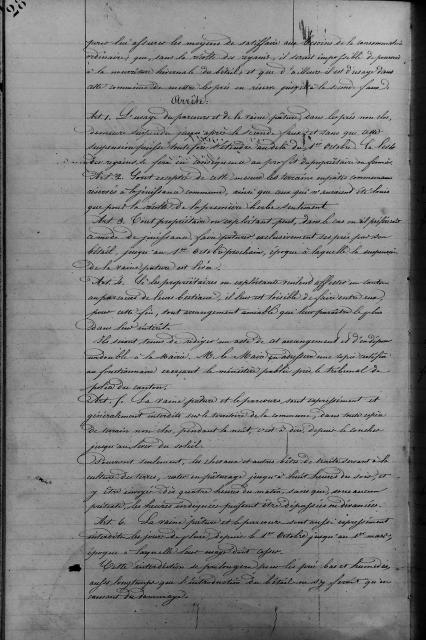 pour lui assurer les moyens de satisfaire aux besoins de la consommation
ordinaire; que, sans la récolte des regains, il serait impossible de pourvoir
à la nourriture hivernale du bétail, et que d'ailleurs il est d'usage dans
cette commune de mettre les prés en réserve jusqu'à la seconde faux.
Arrête:
Art. 1. L'usage du parcours et de la vaine pâture, dans les prés non clos,
demeure suspendu jusqu'après la seconde faux et sans que cette
suspension puisse toutefois s'étendre au delà du 1er Octobre. La récolte
des regains se fera en conséquence au profit des propriétaires ou fermiers.
Art. 2. Sont exceptés de cette mesure les terrains en prairie communaux
réservés à la jouissance commune, ainsi que ceux qui n'auraient été loués
que pour la récolte de la première herbe seulement.
Art. 3. Tout propriétaire ou exploitant peut, dans le cas où il préférerait
ce mode de jouissance, faire pâturer exclusivement ses prés par son
bétail, jusqu'au 1er Octobre prochain, époque à laquelle la suspension
de la vaine pâture est levée.
Art. 4. Si les propriétaires ou exploitants veulent affecter en commun
au parcours de leurs bestiaux, il leur est loisible de faire entre eux,
pour cette fin, tout arrangement amiable qui leur paraîtra le plus
dans leur intérêt.
Ils seront tenus de rédiger un acte de cet arrangement et d'en déposer
un double à la Mairie. M. le Maire en adressera une copie certifiée
au fonctionnaire exerçant le ministère public près le tribunal de
police du canton.
Art. 5. La vaine pâture et le parcours sont expressément et
généralement interdits sur le territoire de la commune, dans toute espèce
de terrain non clos, pendant la nuit, c'est à dire depuis le coucher
jusqu'au lever du soleil.
Pourront seulement, les chevaux et autres bêtes de trait servant à la
culture des terres, rester en pâturage jusqu'à huit heures du soir, et
y être envoyés dès quatre heures du matin, sans que, sous aucun
prétexte, les heures indiquées puissent être dépassées ni devancées.
Art. 6. La vaine pâture et le parcours sont aussi expressément
interdits les jours de pluie, depuis le 1er Octobre jusqu'au 1er mars,
époque à laquelle leur usage doit cesser.
Cette interdiction se prolongera pour les prés bas et humides,
aussi longtemps que l'introduction du bétail n'y ferait qu'
causant du dommage.